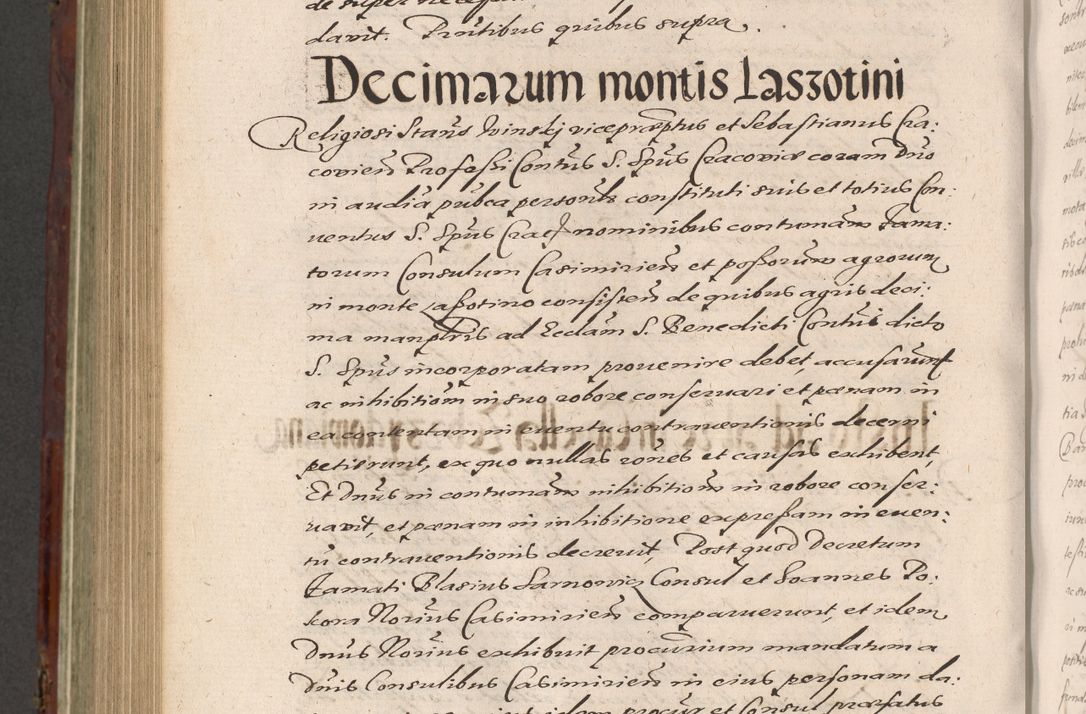 de super recepta
davit. Pn̄tibus quibus supra.
Decimarum montis Laszotini
Religiosi Stan̄s Ivinskj vicepræptus et Sebastianus Cra:
covien̄ Professi Con̄tus S. Sp̄us Cracoviæ coram Dn̄o
in audīa pub̄ca personl̄r constituti suis et totius Con:
ventus S. Sp̄us Crac̄ nominibus contumām fama:
torum Consulum Casimirien̄ et poss̄orum agrorum
in monte Lassotino consisten̄ de quibus agris deci:
ma man̄pl̄ris ad Eccl̄am S. Benedicti Con̄tui dicto
S. Sp̄us incorporatam provenire debet, accusarunt
ac inhibitiōm in suo robore conservari et pœnam in
ea contentam in eventu contraventionis decerni
petierunt, ex quo nullas rōnes et causas exhibent,
Et Dn̄us in contumām inhibitiōm in robore conser:
vavit, et pœnam in inhibitione expressam in even:
tū contraventionis decrevit, Post quod Decretum
famati Blasius Sarnovicz Consul et Joannes Po:
scora Nōrius Casimirien̄ comparuerunt, et idem
Dn̄us Nōrius exhibuit procur̄ium mandatum a
Dn̄is Consulibus Casimirien̄ in eius personam da:
idem procur̄ et Consul præfatus